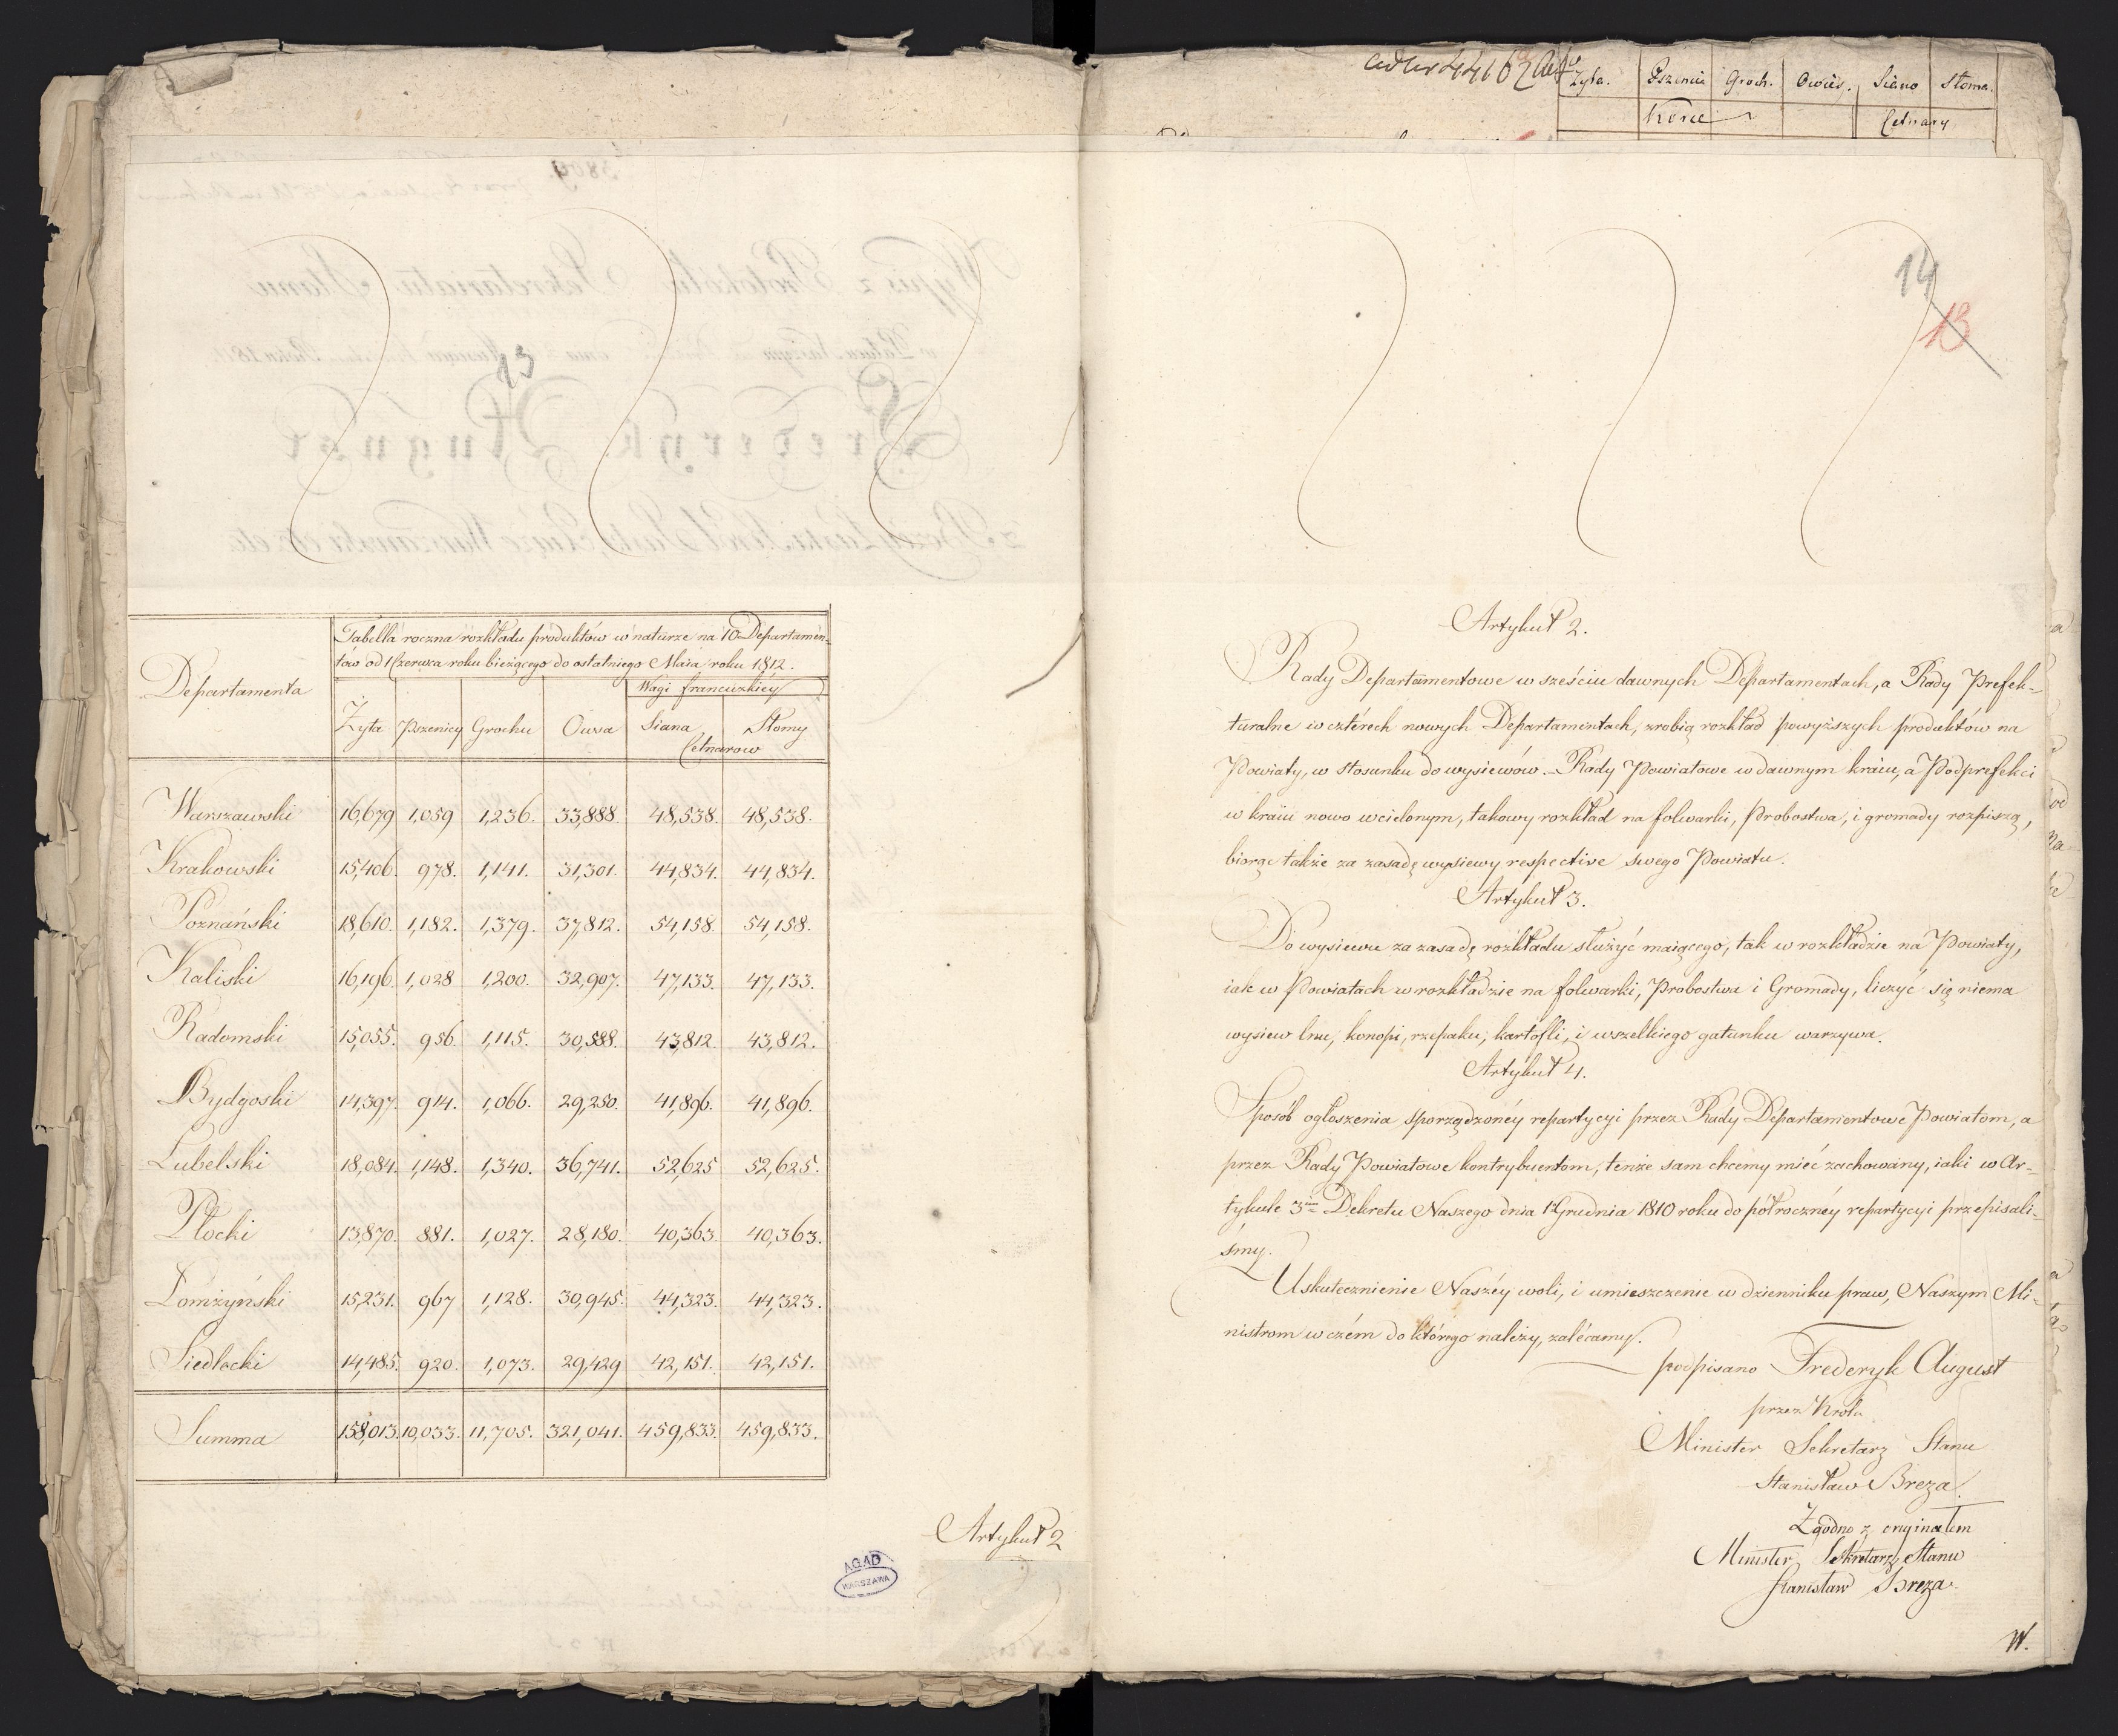 Tabella roczna rozkładu produktów w naturze na 10 Departamen-
tów od 1 Czerwca roku bieżącego do ostatniego Maia roku 1812.
Departamenta
Wagi francuzkiey
Żyta Pszenicy Grochu Owsa Siana Słomy
Cetnarow
Warszawski 16,679 1,059 1,236. 33,888. 48,538. 48,538.
Krakowski 15,406. 978. 1,141. 31,301. 44,834. 44,834.
Poznański 18,610. 1,182. 1,379. 37,812. 54,158. 54,158.
Kaliski 16,196. 1,028 1,200. 32,907. 47,133. 47,133.
Radomski 15,055. 956. 1,115. 30,588. 43,812. 43,812.
Bydgoski 14,397. 914. 1,066. 29,250. 41,896. 41,896.
Lubelski 18,084. 1,148. 1,340. 36,741. 52,625 52,625.
Płocki 13,870. 881. 1,027. 28,180. 40,363. 40,363.
Łomżyński 15,231. 967 1,128. 30,945. 44,323. 44,323.
Siedlecki 14,485. 920. 1,073. 29,429 42,151. 42,151.
Summa 158,013. 10,033. 11,705. 321,041. 459,833. 459,833.
Artykuł 2
AGAD
WARSZAWA
Żyta. Pszenica Groch. Owies. Siano Słoma.
Korce Cetnary
14
13
Artykuł 2.
Rady Departamentowe w sześciu dawnych Departamentach, a Rady Prefek-
turalne w czterech nowych Departamentach, zrobią rozkład powyższych produktów na
Powiaty, w stosunku do wysiewów. - Rady Powiatowe w dawnym kraiu, a Podprefekci
w kraiu nowo wcielonym, takowy rozkład na folwarki, Probostwa, i gromady rozpiszą,
biorąc także za zasadę wysiewy respective swego Powiatu.
Artykuł 3.
Do wysiewu za zasadę rozkładu służyć maiącego, tak w rozkładzie na Powiaty,
iak w Powiatach w rozkładzie na folwarki, Probostwa i Gromady, liczyć się niema
wysiew lnu, konopi, rzepaku, kartofli, i wszelkiego gatunku warzywa.
Artykuł 4.
Sposób ogłoszenia sporządzonéy repartycyi przez Rady Departamentowe Powiatom, a
przez Rady Powiatowe kontrybuentom, tenże sam chcemy mieć zachowany, iaki w Ar-
tykule 3m Dekretu Naszego dnia 1 Grudnia 1810 roku do półrocznéy repartycyi przepisali-
śmy.
Uskutecznienie Naszéy woli, i umieszczenie w dzienniku praw, Naszym Mi-
nistrom w czém do którego należy, zalécamy.
podpisano Frederyk August
przez Króla
Minister Sekretarz Stanu
Stanisław Breza.
Zgodno z originałem
Minister Sekretarz Stanu
Stanisław Breza.
W.